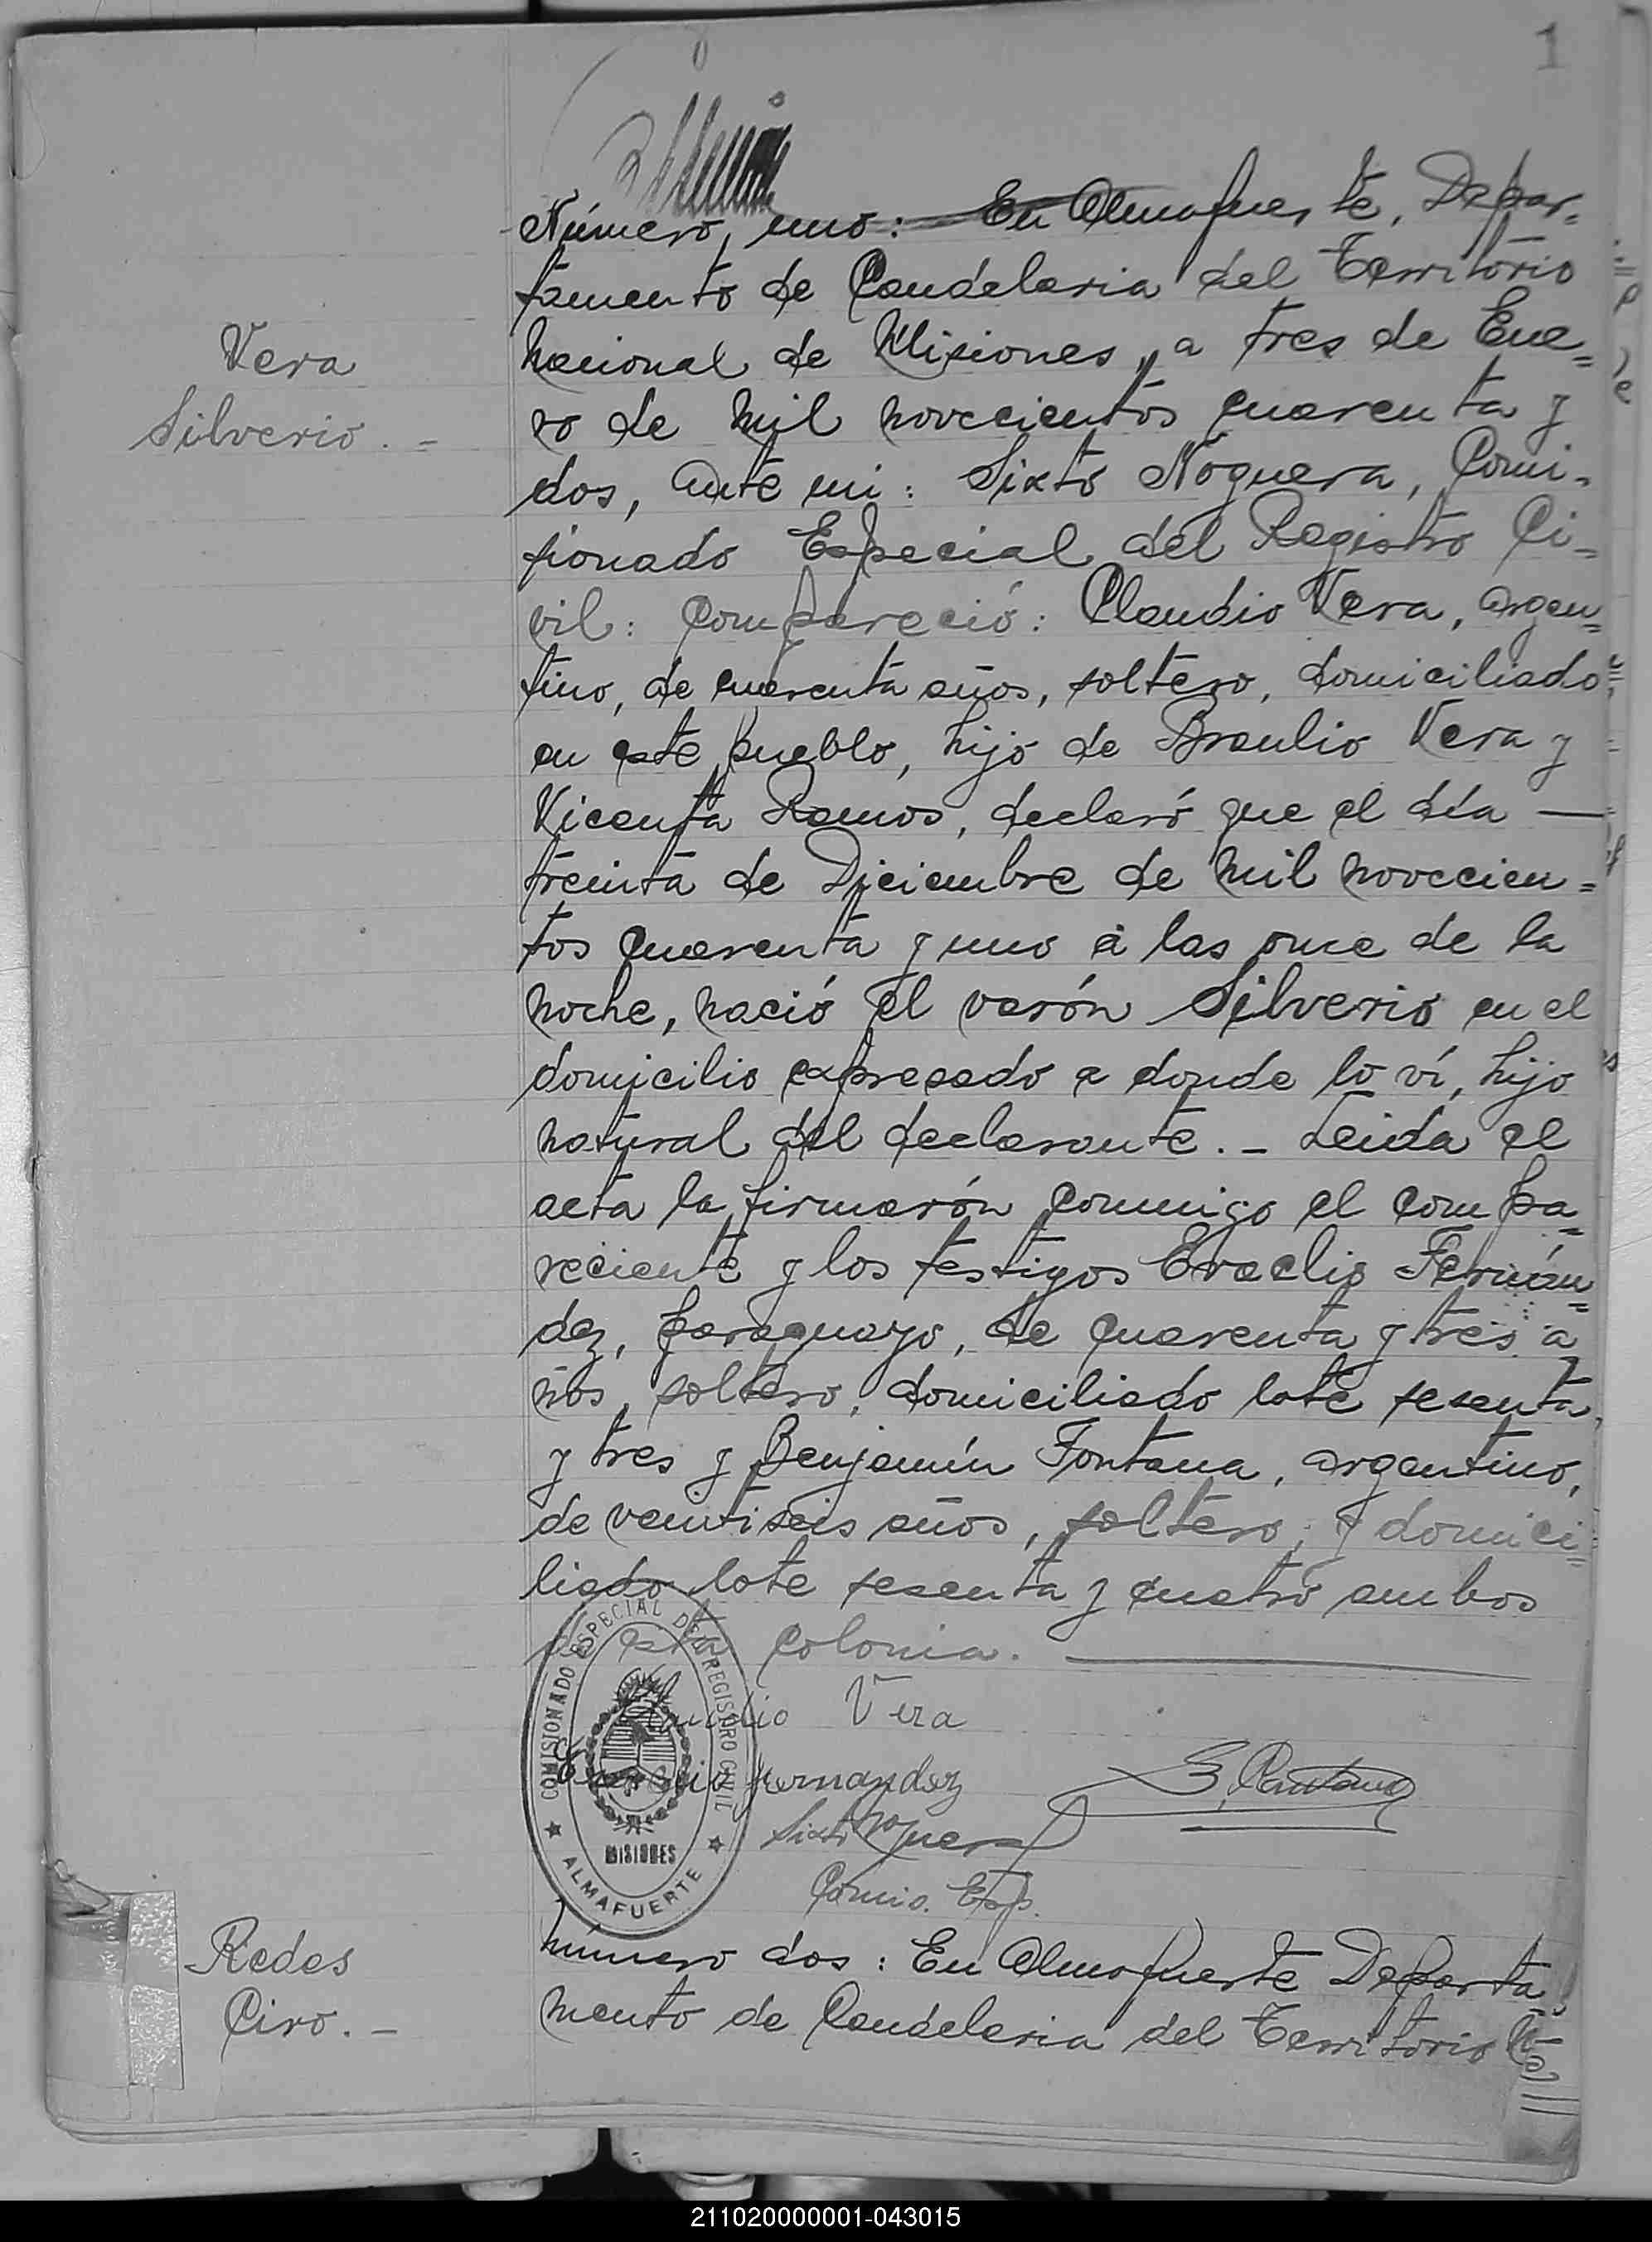 1
Número, uno: En Almafuerte, Depar=
tamento de Candelaria del Territorio
Nacional de Misiones, a tres de Ene=
Vera
ro de mil novecientos cuarenta y
Silverio. -
dos, ante mi: Sixto Noguera, Comi-
sionado Especial del Registro Ci-
vil: compareció: Claudio Vera, argen=
tino, de cuarenta años, soltero, domiciliado
en este pueblo, hijo de Braulio Vera y
Vicenta Ramos, declaró que el día —
treinta de Diciembre de mil novecien=
tos cuarenta y uno a las once de la
noche, nació el varón Silverio en el
domicilio expresado a donde lo ví, hijo
natural del declarante. - Leida el
acta la firmarón conmigo el compa=
reciente y los testigos Eraclio Fernán=
dez, paraguayo, de cuarenta y tres a
ños, soltero, domiciliado lote sesenta
y tres y Benjamín Fontana, argentino,
de veintiseis años, soltero, y domici=
liado lote sesenta y cuatro ambos
de esta colonia.
Claudio Vera
Eraclio Fernandez
B. Fontana
Sixto Noguera
Comis. Esp.
COMISIONADO ESPECIAL DEL REGISTRO CIVIL
MISIONES
★ ALMAFUERTE ★
Redes
Ciro. -
Número dos: En Almafuerte Departa
mento de Candelaria del Territorio Na
211020000001-043015